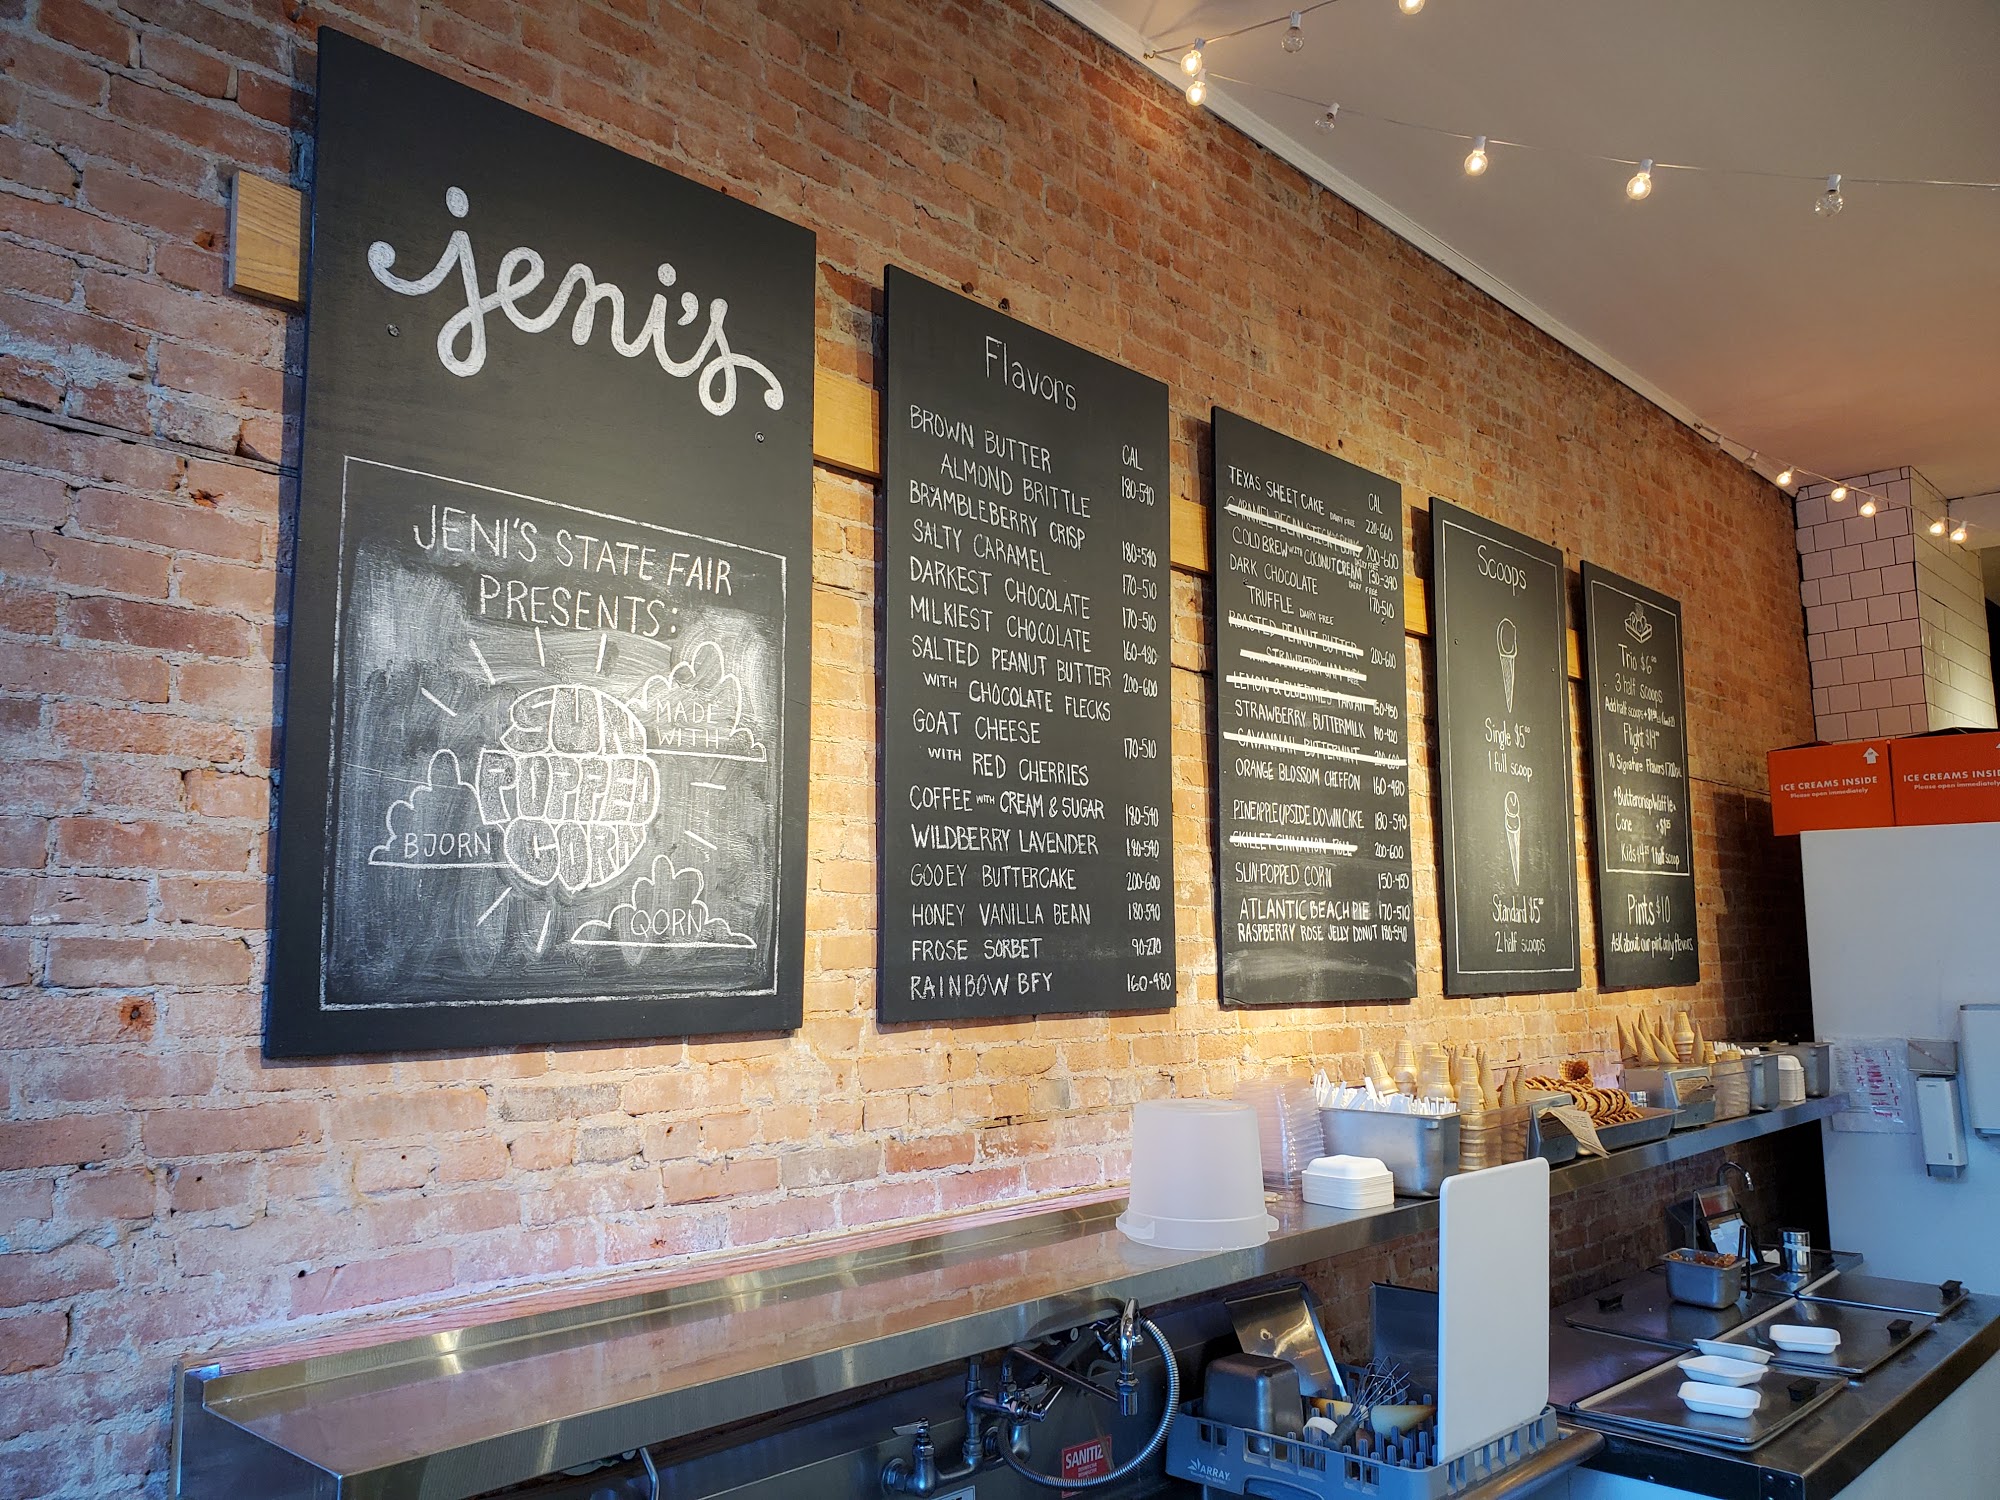 jeni's
JENI'S STATE FAIR
PRESENTS:
SUN
POPPED
CORN
MADE
WITH
BJORN
QORN
Flavors
BROWN BUTTER CAL
ALMOND BRITTLE 180-540
BRAMBLEBERRY CRISP 180-540
SALTY CARAMEL 170-510
DARKEST CHOCOLATE 170-510
MILKIEST CHOCOLATE 160-480
SALTED PEANUT BUTTER 200-600
WITH CHOCOLATE FLECKS
GOAT CHEESE 170-510
WITH RED CHERRIES
COFFEE WITH CREAM & SUGAR 180-540
WILDBERRY LAVENDER 180-540
GOOEY BUTTERCAKE 200-600
HONEY VANILLA BEAN 180-540
FROSE SORBET 90-270
RAINBOW BFY 160-480
CAL
TEXAS SHEET CAKE DAIRY FREE 220-660
CARAMEL PECAN STICKY BUNS 200-600
COLD BREW WITH COCONUT CREAM DAIRY FREE 130-390
DARK CHOCOLATE 170-510
TRUFFLE DAIRY FREE
ROASTED PEANUT BUTTER 200-600
STRAWBERRY JAM
LEMON & BLUEBERRIES PARFAIT 150-450
STRAWBERRY BUTTERMILK 140-420
SAVANNAH BUTTERMINT 200-600
ORANGE BLOSSOM CHIFFON 160-480
PINEAPPLE UPSIDE DOWN CAKE 180-540
SKILLET CINNAMON ROLL 200-600
SUN POPPED CORN 150-450
ATLANTIC BEACH PIE 170-510
RASPBERRY ROSE JELLY DONUT 180-540
Scoops
Single $5⁰⁰
1 full scoop
Standard $5⁵⁰
2 half scoops
Trio $6⁰⁰
3 half scoops
Add half scoops
Flight $14⁰⁰
10 Signature Flavors
*Buttercrisp Waffle
Cone
Kids $4 1 half scoop
Pints $10
Ask about our pint only flavors
ICE CREAMS INSIDE
Please open immediately
ICE CREAMS INSIDE
Please open immediately
SANITIZ
ARRAY